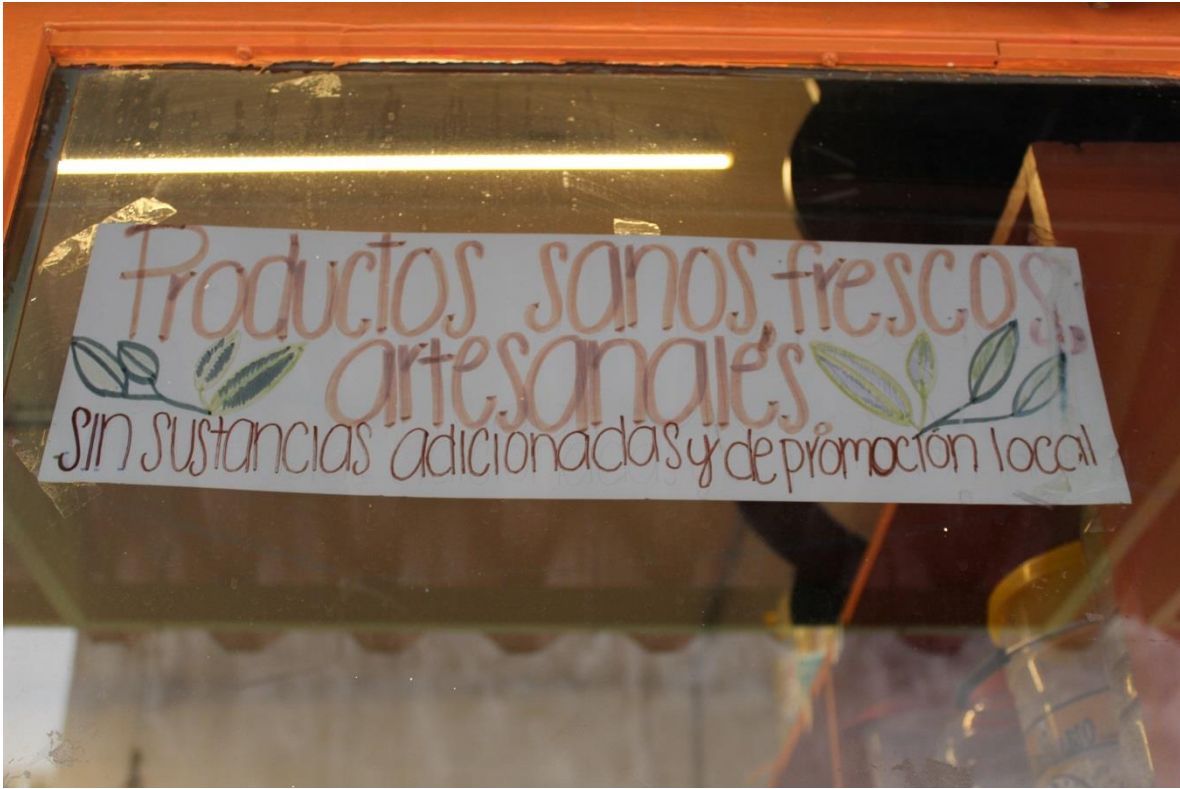 Productos sanos, frescos,
artesanales.
sin sustancias adicionadas y de promoción local